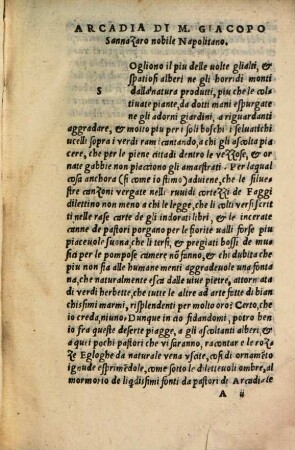 ARCADIA DI M. GIACOPO
Sannazaro nobile Napolitano.
Ogliono il piu delle uolte glialti, &
spatiosi alberi ne gli horridi monti
S
dalla natura produtti, piu che le col
tiuate piante, da dotti mani espurgate
ne gli adorni giardini, a riguardanti
aggradare, & molto piu per i soli boschi i seluatichi
ucelli sopra i verdi rami cantando, a chi gli ascolta pia
cere, che per le piene cittadi dentro le vezzose, & or
nate gabbie non piacciono gli amaestrati. Per laqual
cosa anchora (si come io stimo) aduiene, che le silue
stre canzoni vergate nelli ruuidi cortezzi de Faggi
dilettino non meno a chi le legge, che li colti versi scrit
ti nelle rase carte de gli indorati libri, & le incerate
canne de pastori porgano per le fiorite ualli forse piu
piaceuole suono, che li tersi, & pregiati bossi de musi
sia per le pompose camere nō fanno, & chi dubita che
piu non sia alle humane menti aggradeuole una fonta
na, che naturalmente esca dalle uiue pietre, attornata
di verdi herbette, che tutte le altre ad arte fatte di bian
chissimi marmi, risplendenti per molto oro? Certo, che
io creda, niuno. Dunque in cio fidandomi, potro ben
io fra queste deserte piagge, a gli ascoltanti alberi, & a
qui pochi pastori che vi saranno, racontar e le roza
ze Egloghe da naturale vena vscite, cosi di ornamēto
ignude esprimēdole, come sotto le diletteuoli ombre, al
mormorio de liqdissimi fonti da pastori di Arcadia le
A ii